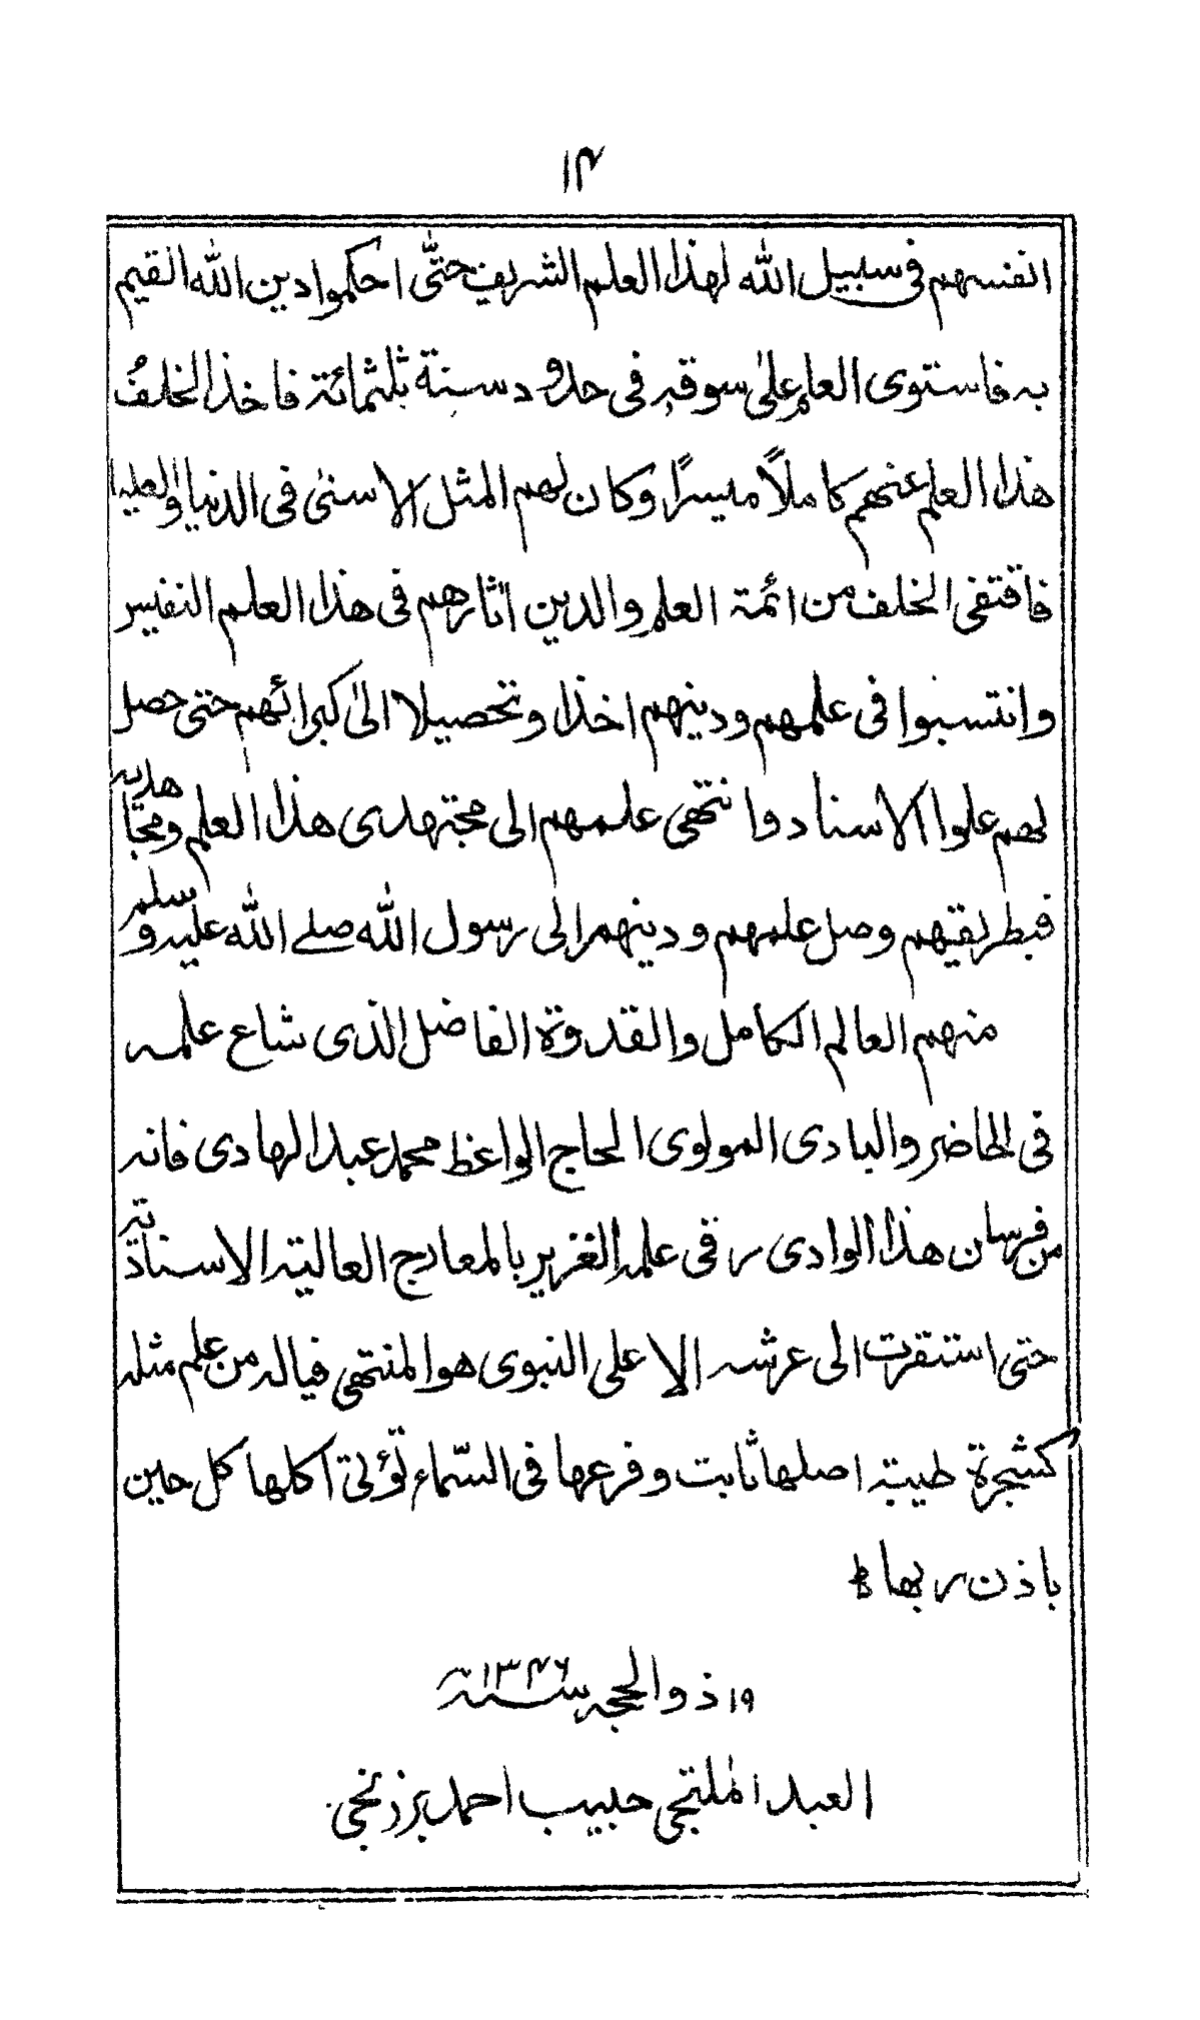 ۱۴
انفسهم فی سبیل الله لهذا العلم الشریف حتّٰی احکموا دین الله القیم
به فاستوی العلم علیٰ سوقه فی حدود سنة ثلثمائة فاخذ الخلفُ
هذا العلم عنهم کاملاً میسراً وکان لهم المثل الاسنیٰ فی الدنیا والعلیا
فاقتفی الخلف من ائمة العلم والدین اٰثارهم فی هذا العلم النفیس
وانتسبوا فی علمهم ودینهم اخذا وتحصیلا الیٰ کبرائهم حتی حصل
لهم علوا الاسناد وانتهی علمهم الی مجتهدی هذا العلم ومجاهدیه
فبطریقهم وصل علمهم ودینهم الی رسول الله صلے الله علیه وسلم
منهم العالم الکامل والقدوة الفاضل الذی شاع علمه
فی الحاضر والبادی المولوی الحاج الواعظ محمد عبد الهادی فانه
من فرسان هذا الوادی رقی علمه الغزیر بالمعارج العالیة الاسنادیة
حتی استقرت الی عرشه الاعلی النبوی هو المنتهی فیاله من علم مثله
کشجرة طیبة اصلها ثابت وفرعها فی السّماء تؤتی اکلها کل حین
باذن ربها ط
۱۹ ذوالحجه سنة ۱۳۴۶ ه
العبد الملتجی حبیب احمد برزنجی